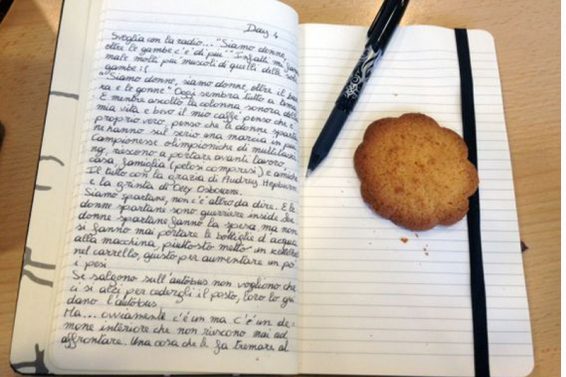 Day 4
Sveglia con la radio... "Siamo donne,
oltre le gambe c'è di più" Infatti mi fanno
male molti più muscoli di quelli delle sole
gambe!!
"Siamo donne, siamo donne, oltre il bar
na e le gonne" Oggi sembra tutto a tema
E mentre ascolto la colonna sonora della
mia vita e bevo il mio caffè penso che è
proprio vero, penso che le donne sparta
ne hanno sul serio una marcia in più.
Campionesse olimpioniche di multitaski
ng, riescono a portare avanti lavoro
casa, famiglia (pelosi compresi) e amiche
Il tutto con la grazia di Audrey Hepburn
e la grinta di Ozzy Osborne.
Siamo spartane, non c'è altro da dire. E le
donne spartane sono guerriere inside. Le
donne spartane fanno la spesa ma non
si fanno mai portare le bottiglie d'acqua
alla macchina, piuttosto metto un kettlebell
nel carrello, giusto per aumentare un po'
i pesi
Se salgono sull'autobus non vogliono che
ci si alzi per cedergli il posto, loro lo gui
dano l'autobus.
Ma... ovviamente c'è un ma c'è un de
mone interiore che non riescono mai ad
affrontare. Una cosa che le fa tremare al